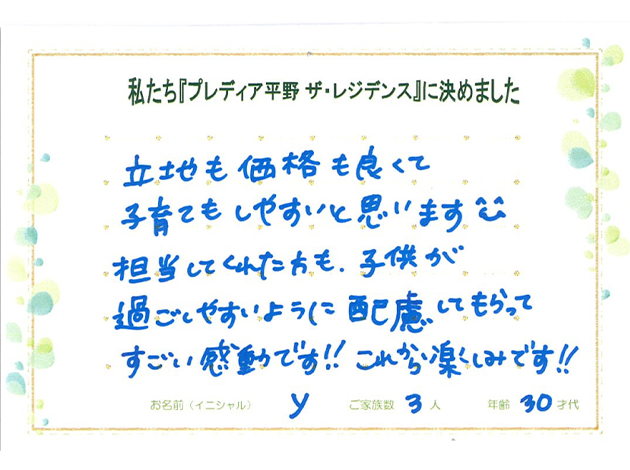 私たち『プレディア平野 ザ・レジデンス』に決めました
立地も価格も良くて
子育てもしやすいと思います
担当してくれた方も、子供が
過ごしやすいように配慮してもらって
すごい感動です!! これから楽しみです!!
お名前（イニシャル） y ご家族数 3 人 年齢 30 才代